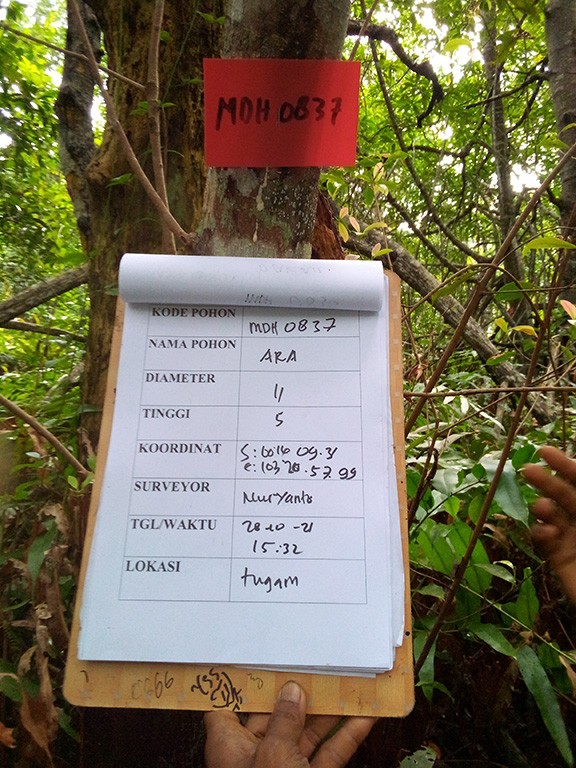 MDH 0837
KODE POHON MDH 0837
NAMA POHON ARA
DIAMETER 11
TINGGI 5
KOORDINAT S:
e:
SURVEYOR Nuryanto
TGL/WAKTU 28-10-21
15:32
LOKASI tugam